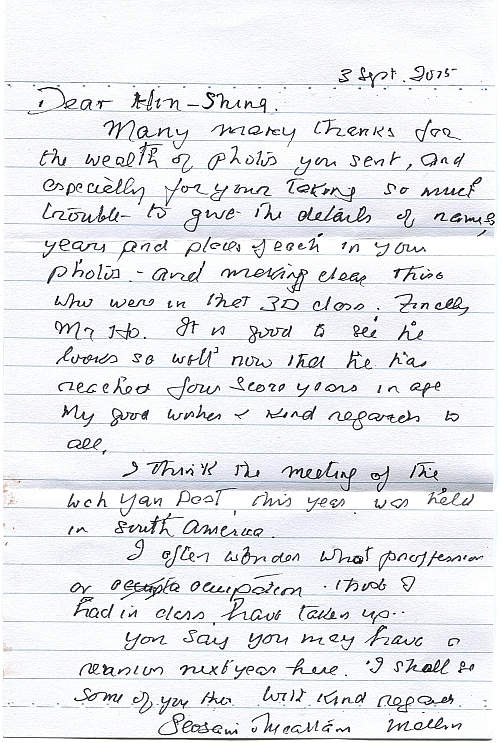 3 Sept. 2015
Dear Hin-Shing.
Many many thanks for
the wealth of photos you sent, and
especially for your taking so much
trouble to give the details of names,
years and places of each in your
photos - and making clear those
who were in that 3D class. Finally
Mr Ho. It is good to see he
looks so well now that he has
reached four score years in age
My good wishes & kind regards to
all.
I think the meeting of the
Wah Yan Past, this year was held
in South America.
I often wonder what proffession
or occupation those I
had in class, have taken up..
You say you may have a
reunion next year here. I shall se
some of you then. With kind regards.